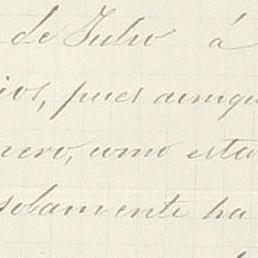 de Julio á
ios, pues aunqu
nero, como esta
solamente ha